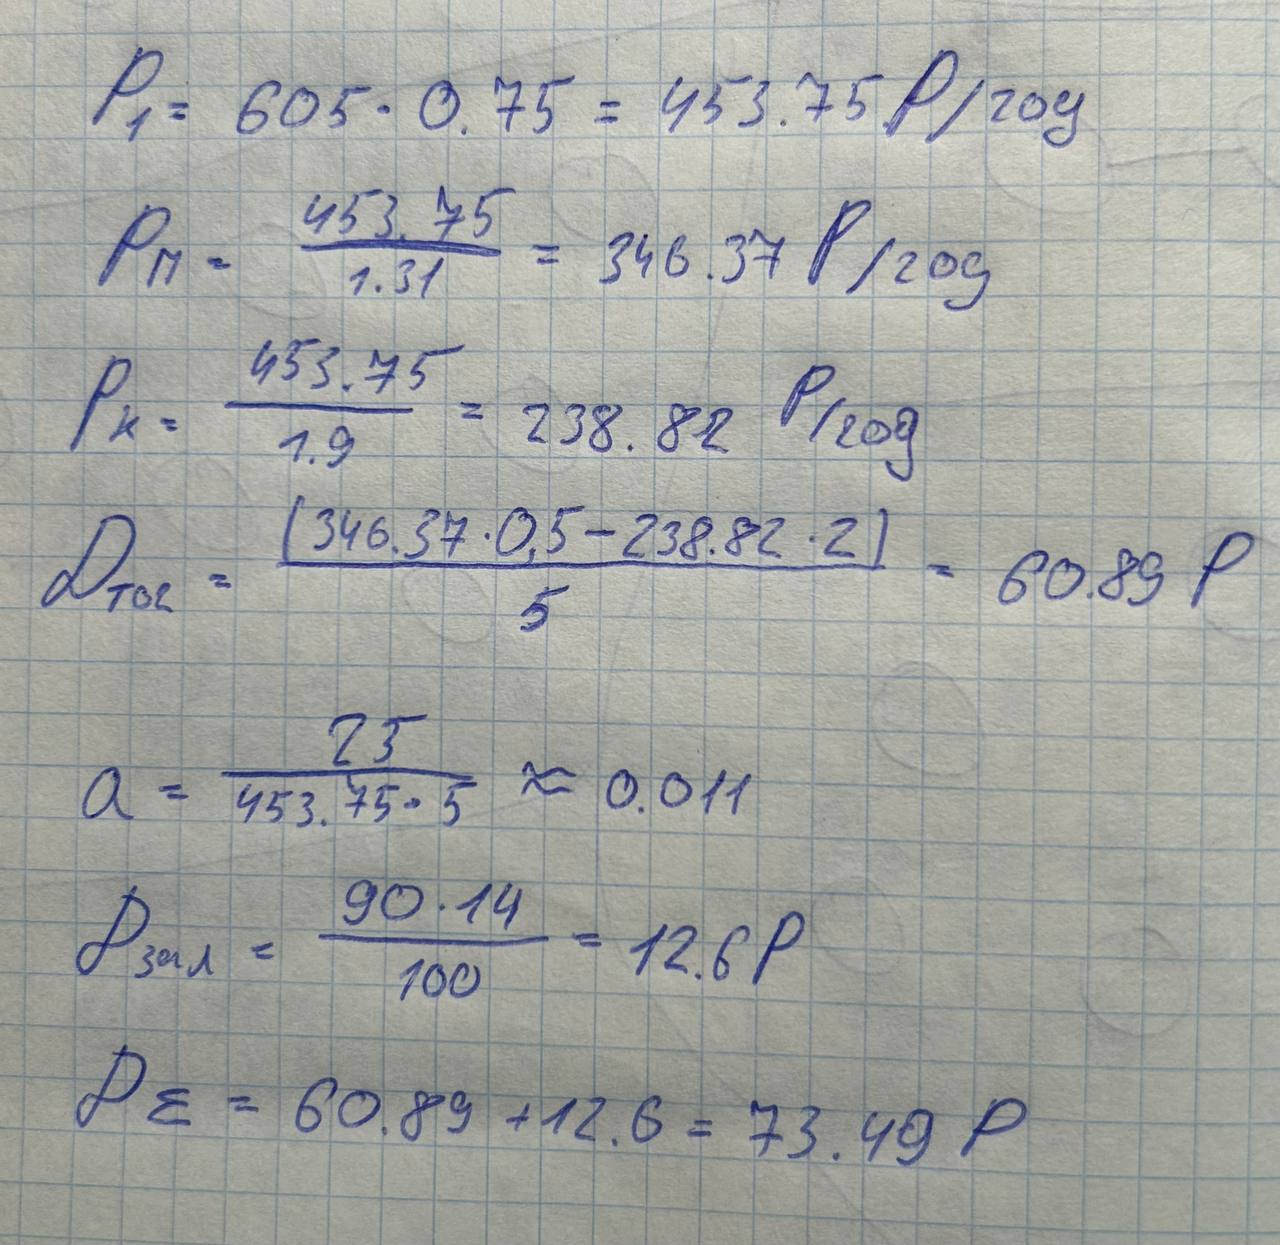 P₁ = 605 · 0.75 = 453.75 Р/год
Pп = 453.75 / 1.31 = 346.37 Р/год
Pк = 453.75 / 1.9 = 238.82 Р/год
Dтог = (346.37 · 0,5 – 238.82 · 2) / 5 = 60.89 Р
a = 25 / 453.75 · 5 ≈ 0.011
Dзал = 90 · 14 / 100 = 12.6 Р
DΣ = 60.89 + 12.6 = 73.49 Р